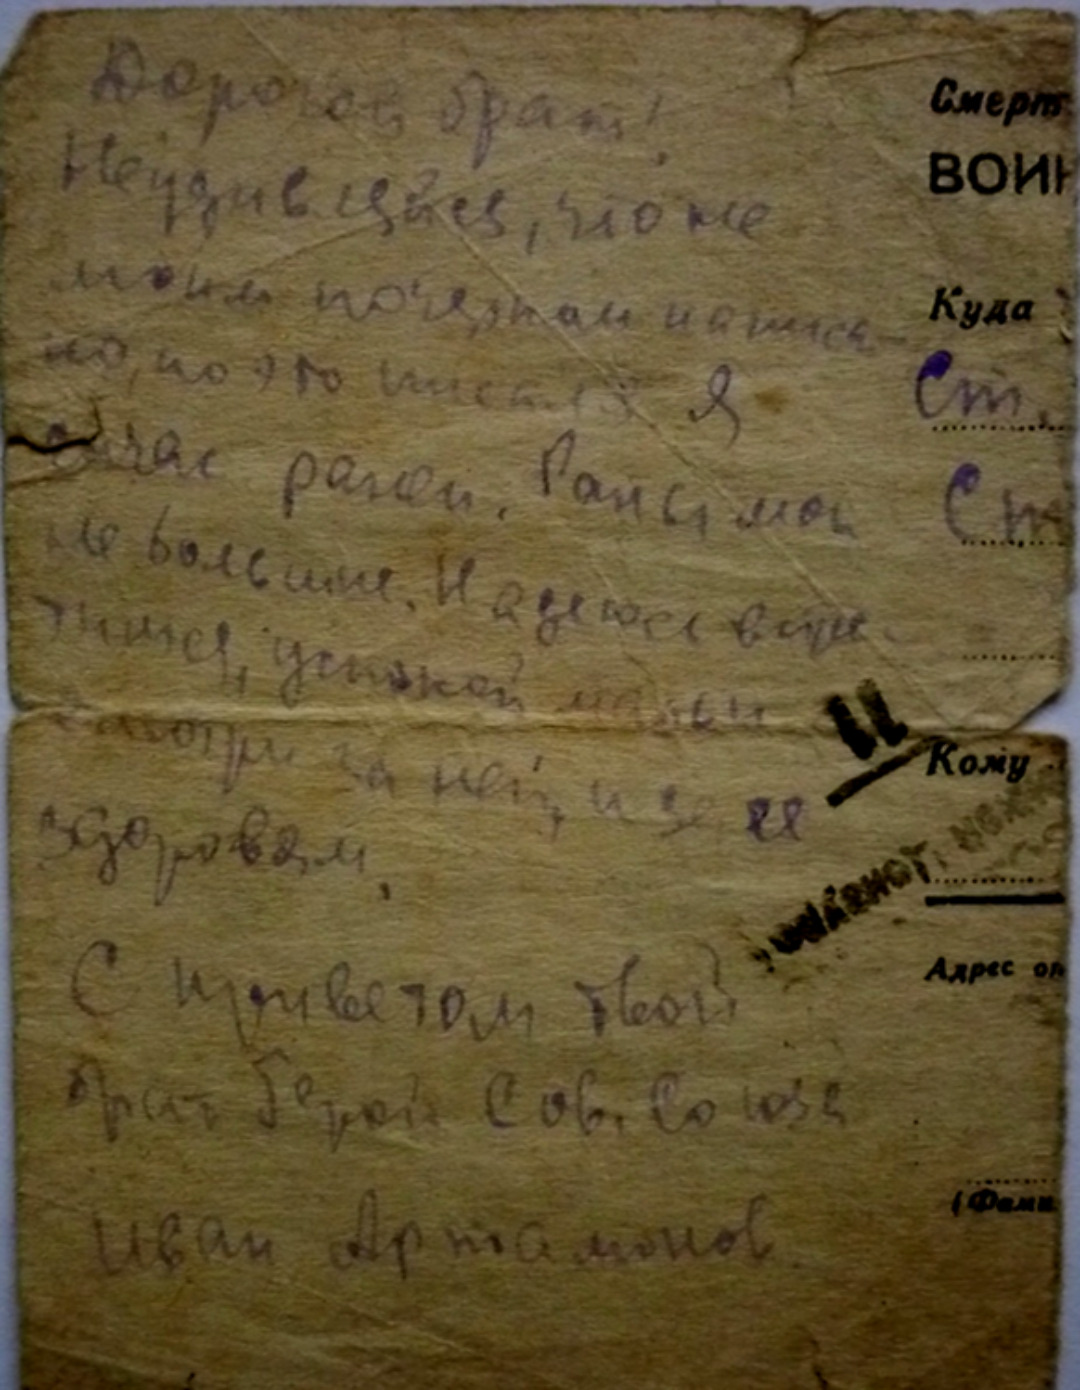 Дорогой брат!
Неудивляйся, что не
моим почерком написа-
но, но это писал я Я
сичас ранен. Раны мои
не большие. Надеюсь встре-
тимся, успокой маман
смотри за ней, и за ее
здоровям,
С приветом твой
брат Герой Сов. Союза
Иван Артамонов
Смерт
ВОИН
Куда
Ст.
Кому
Адрес от
(Фами